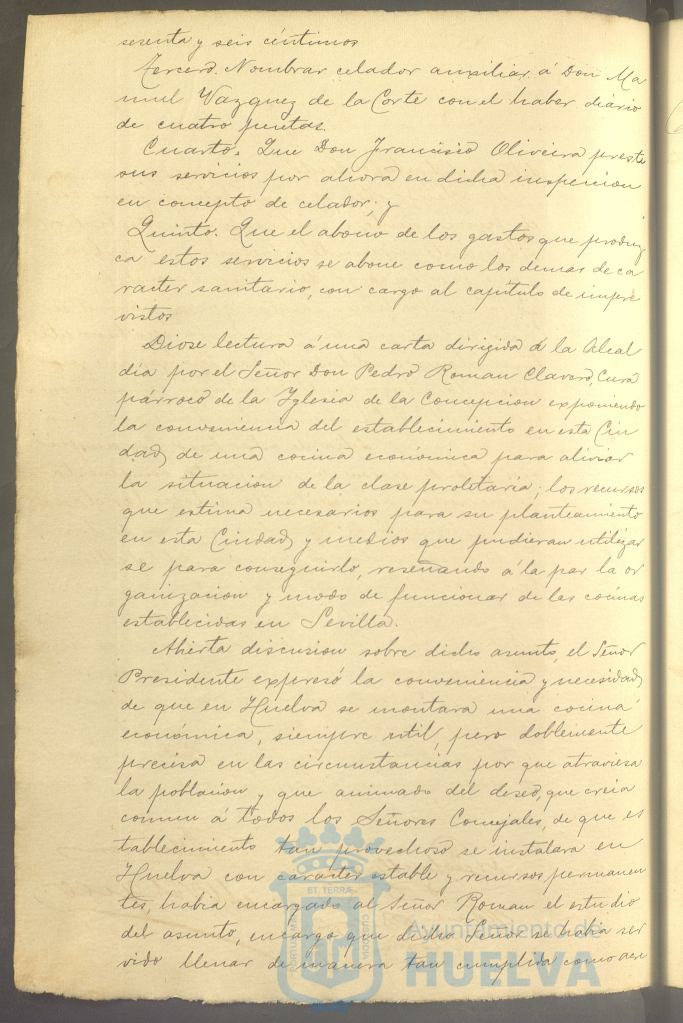 sesenta y seis céntimos
Tercero. Nombrar celador auxiliar á Don Ma
nuel Vazquez de la Corte con el haber diario
de cuatro pesetas.
Cuarto. Que Don Francisco Oliveira preste
sus servicios por ahora en dicha inspeccion
en concepto de celador; y
Quinto. Que el abono de los gastos que produz
ca estos servicios se abone como los demas de ca
racter sanitario, con cargo al capitulo de impre
vistos
Diose lectura á una carta dirigida á la Alcal
dia por el Señor Don Pedro Roman Clavero, Cura
párroco de la Yglesia de la Concepcion exponiendo
la conveniencia del establecimiento en esta Ciu
dad de una cocina económica para aliviar
la situacion de la clase proletaria; los recursos
que estima necesarios para su planteamiento
en esta Ciudad y medios que pudieran utilizar
se para conseguirlo, reseñando á la par la or
ganizacion y modo de funcionar de las cocinas
establecidas en Sevilla.
Abierta discusion sobre dicho asunto, el Señor
Presidente expresó la conveniencia y necesidad
de que en Huelva se montara una cocina
económica, siempre util, pero doblemente
precisa en las circunstancias por que atraviesa
la poblacion y que animado del deseo, que creia
comun á todos los Señores Concejales, de que es
tablecimiento tan provechoso se instalara en
Huelva con carácter estable y recursos permanen
tes, habia encargado al Señor Roman el estudio
del asunto, encargo que dicho Señor se habia ser
vido llenar de manera tan cumplida como acre
Ayuntamiento de
HUELVA